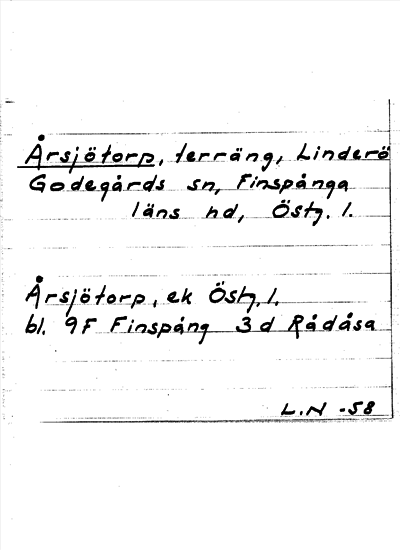 Årsjötorp, terräng, Linderö
Godegårds sn, Finspånga
läns hd, Östg. l.
Årsjötorp, ek Östg. l.
bl. 9F Finspång 3d Rådåsa
L.N -58